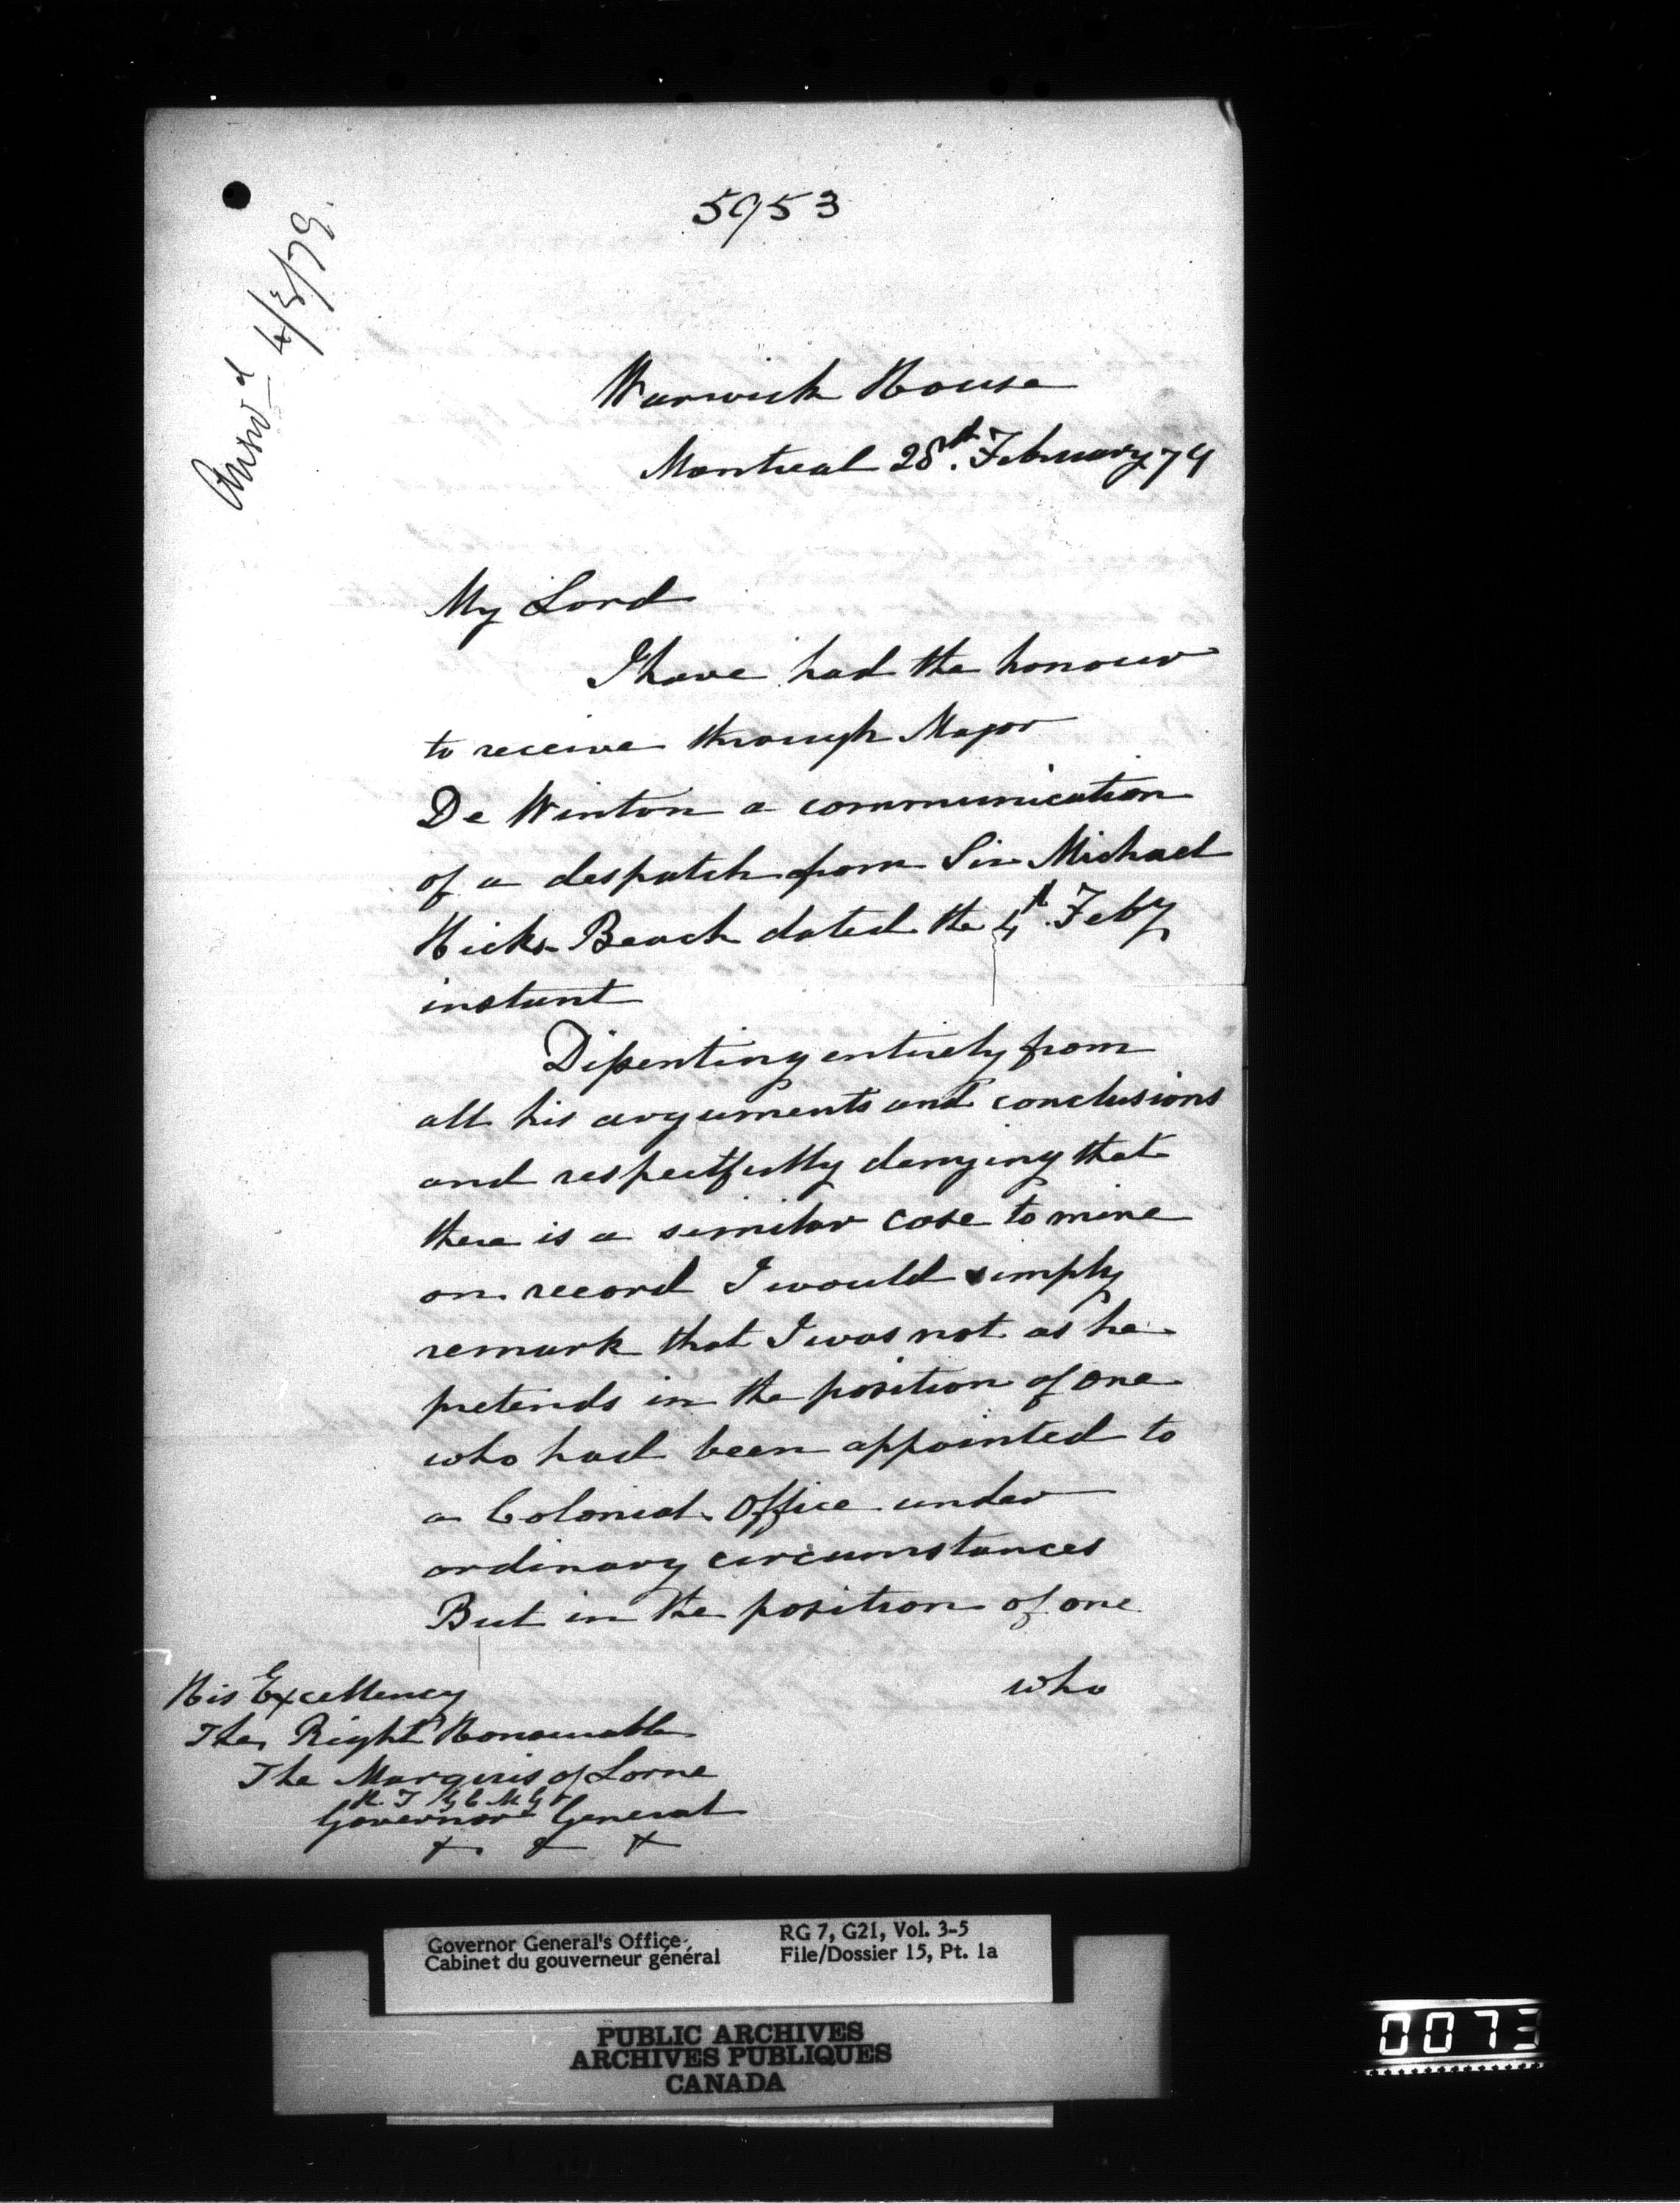 5953
Answd 4/3/79.
Warwick House
Montreal 28th. February 79
My Lord
I have had the honour
to receive through Major
De Winton a communication
of a despatch from Sir Michael
Hicks Beach dated the 4th. Feby
instant
Dissenting entirely from
all his arguments and conclusions
and respectfully denying that
there is a similar case to mine
on record I would simply
remark that I was not as he
pretends in the position of one
who had been appointed to
a Colonial Office under
ordinary circumstances
But in the position of one
who
His Excellency
The Right Honourable
The Marquis of Lorne
K. T G C M G
Governor General
Governor General's Office
Cabinet du gouverneur général
RG 7, G21, Vol. 3-5
File/Dossier 15, Pt. 1a
PUBLIC ARCHIVES
ARCHIVES PUBLIQUES
CANADA
0073